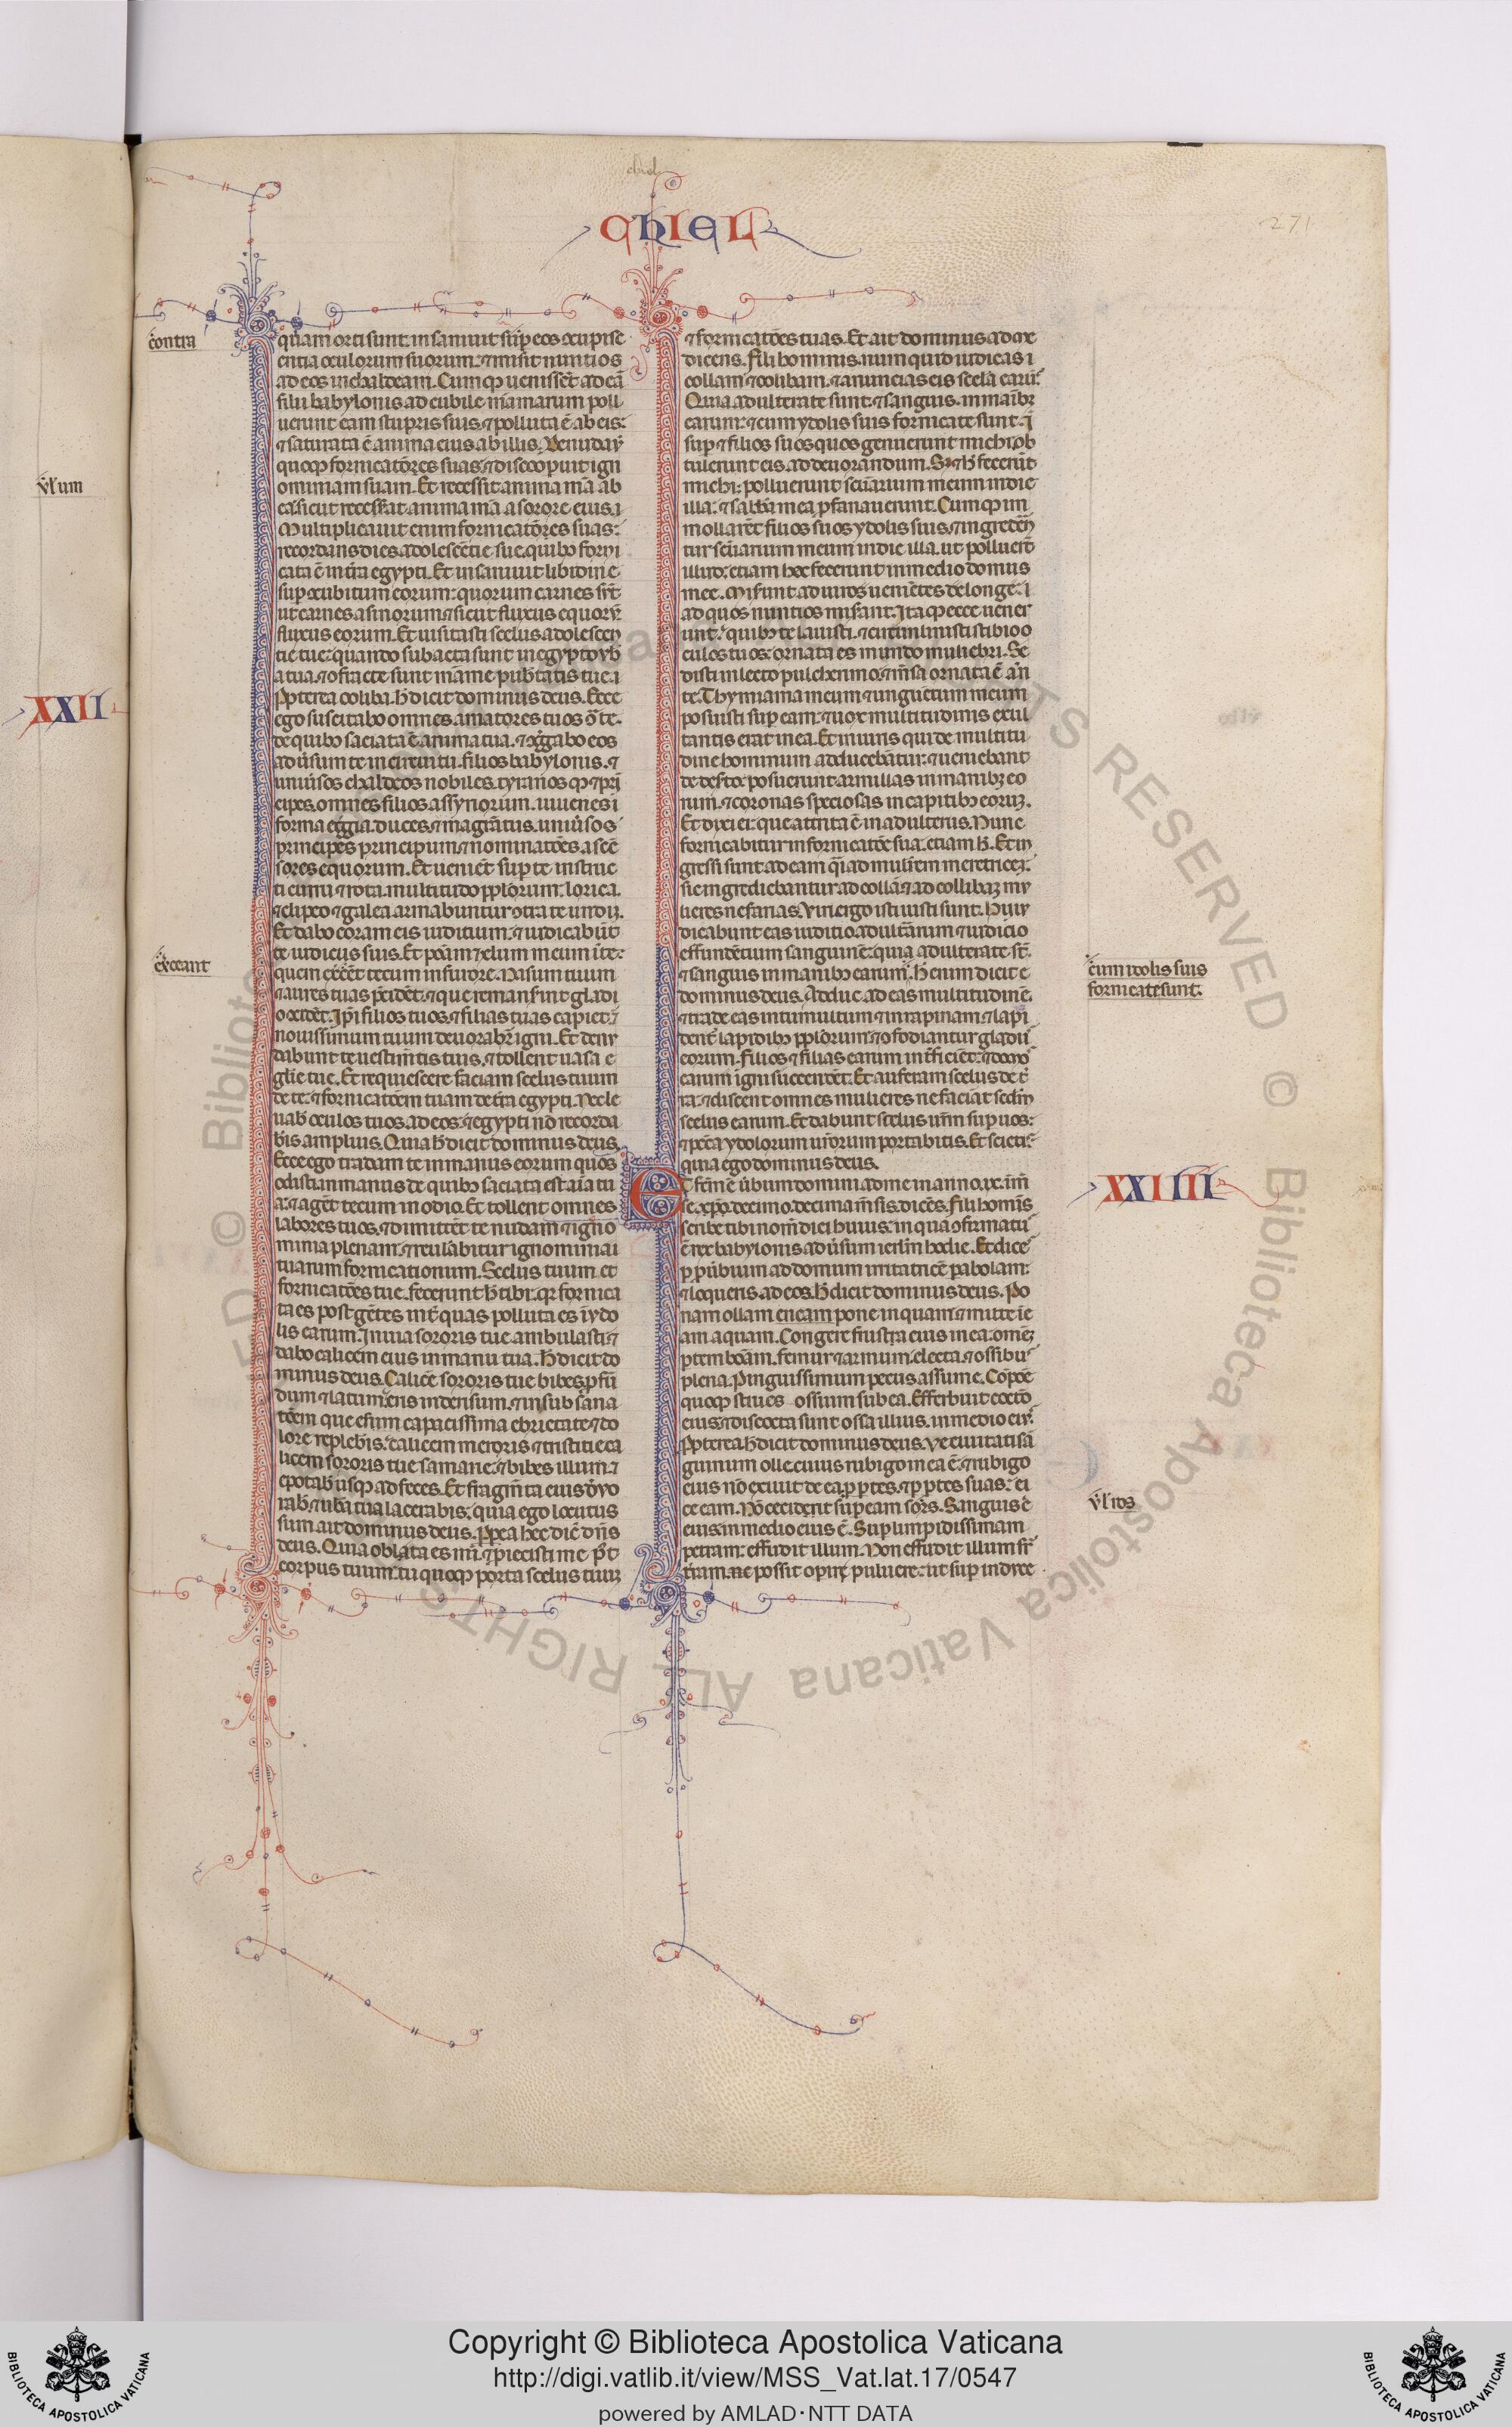 chiel
QHIEL
271
contra
quam orti sunt. insaniuit sup eos ꝯcupisc
entia oculorum suorum: ⁊ misit nuntios
ad eos in chaldeam. Cumqꝫ uenissēt ad eā
filii babylonis ad cubile māmarum poll
uerunt eam stupris suis. ⁊ polluta ē ab eis:
⁊ saturata ē anima eius ab illis. Denudaӯ
quoqꝫ fornicatōes suas. ⁊ discoopuit ign
ominiam suam. Et recessit anima mā ab
ea. sicut recesserat anima mā a sorore eius.
Multiplicauit enim fornicatōes suas:
recordans dies adolescētie sue. quibꝰ forni
cata ē in tr̄a egypti. Et insaniuit libidine
sup ꝯcubitum eorum: quorum carnes sūt
ut carnes asinorum. ⁊ sicut fluxus equorꝝ
fluxus eorum. Et uisitasti scelus adolescen
tie tue: quando subacta sunt in egypto ub̄
a tua. ⁊ ꝯfracte sunt māme pub̄tatis tue.
Ppterea ooliba. h̄ dicit dominus deus. Ecce
ego suscitabo omnes amatores tuos ꝯ̄ te.
de quibꝰ saciata ē anima tua. ⁊ ꝯg̃gabo eos
aduersum te in circuitu. filios babylonis. ⁊
uniūsos chaldeos nobiles. tyrānosqꝫ ⁊ pri
cipes. omnes filios assyriorum. iuuenes
forma egͥgia. duces. ⁊ magr̄atus. uniūsos
principes principum ⁊ nominatōes ascē
sores equorum. Et ueniēt sup te instruc
ti curru ⁊ rota. multitudo pplorum: lorica.
⁊ clipeo ⁊ galea armabuntur ꝯtra te undiqꝫ.
Et dabo coram eis iuditium. ⁊ iudicabūt
te iudiciis suis. Et ponam zelum meum ī te:
quem exercēt tecum in furore. Nasum tuum
⁊ aures tuas pcidēt. ⁊ que remanserint gladi
o ꝯcidēt. Ipi filios tuos. ⁊ filias tuas capiēt. ⁊
nouissimum tuum deuorabr̄ igni. Et denu
dabunt te uestimtis tuis. ⁊ tollent uasa
glie tue. Et requiescere faciam scelus tuum
de te. ⁊ fornicatōem tuam de tr̄a egypti. Nec le
uab̄ oculos tuos ad eos: ⁊ egypti nō recorda
b̄is amplius. Quia h̄ dicit dominus deus.
Ecce ego tradam te in manus eorum quos
odisti. in manus de quibꝰ saciata est aīa tu
a: ⁊ agēt tecum in odio. Et tollent omnes
labores tuos. ⁊ dimittēt te nudam ⁊ igno
minia plenam. ⁊ reuelabitur ignominia
tuarum fornicationum. Scelus tuum et
fornicatōes tue. fecerunt h̄ tibi: qꝛ fornica
ta es post gētes int̄ quas polluta es ī ydo
lis earum. In uia sororis tue ambulasti ⁊
dabo calicem eius in manu tua. H̄ dicit do
minus deus. Calicē sororis tue bibes. pfū
dum ⁊ latum. eris in derisum. ⁊ in subsana
tōem que est capacissima. ebrietate ⁊ do
lore repleb̄is. calicem meroris ⁊ tristitie ca
licem sororis tue samarie. ⁊ bibes illum. ⁊
epotab̄ usqꝫ ad feces. Et fragmta eius deuo
rab̄. ⁊ ub̄a tua lacerabis: quia ego locutus
sum ait dominus deus. Pptea hec dic̄ dn̄s
deus. Quia oblita es mi. ⁊ piecisti me p̄t
corpus tuum: tu quoqꝫ porta scelus tuuꝫ
v̄l um
XXII
exerceant
⁊ fornicatōes tuas. Et ait dominus ad me
dicens. Fili hominis. numquid iudicas
oollam ⁊ oolibam. ⁊ anuncias eis scelā earū:
Quia adulterate sunt. ⁊ sanguis. in manibꝫ
earum: ⁊ cum ydolis suis fornicate sunt.
Insup ⁊ filios suos quos genuerunt michi ob
tulerunt eis. ad deuorandum. Sꝫ ⁊ h̄ fecerūt
michi: polluerunt scūarium meum in die
illa: ⁊ sabb̄a mea pfanauerunt. Cumqꝫ im
molarēt filios suos ydolis suis. ⁊ ingreder̄en
tur scūarium meum in die illa. ut polluerēt
illud: etiam hec fecerunt in medio domus
mee. Miserunt ad uiros ueniētes de longe.
ad quos nuntios miserant. Itaqꝫ ecce uener
unt: quibꝰ te lauisti. ⁊ circumlinisti stibio o
culos tuos: ornata es mundo muliebri. Se
disti in lecto pulcherrimo. ⁊ mēsa ornata ē an̄
te. Thymiama meum ⁊ unguētum meum
posuisti sup eam: ⁊ uox multitudinis exul
tantis erat in ea. Et in uiris qui de multitu
dine hominum adducebātur: ⁊ ueniebant
de deserto. posuerunt armillas in manibꝫ eo
rum. ⁊ coronas speciosas in capitibꝰ eoruꝫ.
Et dixi ei: que attrita ē in adulteriis. Nunc
fornicabitur in fornicatōe sua. etiam h̄. Et in
gressi sunt ad eam q̄i ad mulierem meretricē.
sic ingrediebantur ad oollā ⁊ ad oollibaꝫ mu
lieres nefarias. Viri ergo isti iusti sunt. Hii iu
dicabunt eas iuditio adulterarum ⁊ iudicio
effundētium sanguinē: quia adulterate st̄.
⁊ sanguis in manibꝰ earum. H̄ enim dicit
dominus deus. Adduc ad eas multitudinē.
⁊ trade eas in tumultum ⁊ in rapinam: ⁊ lapi
dent̄ lapidibꝰ pplorum: ⁊ ꝯfodiantur gladiis
eorum. Filios ⁊ filias earum int̄ficiēt: ⁊ domos
earum igni succendēt. Et auferam scelus de t̄
ra: ⁊ discent omnes mulieres ne faciāt scdm̄
scelus earum. Et dabunt scelus ur̄m sup uos:
⁊ pctā ydolorum ur̄orum portabitis. Et scietis
quia ego dominus deus.
Et fcm̄ ē ūbum domini ad me in anno. ix. in
mēse. xͦ. decimo. decima mēsis. dicēs. Fili homīs
scribe tibi nom̄ diei huius. in qua ꝯfirmatus
ē rex babylonis aduersum ierlm̄ hodie. Et dices
p puerbium ad domum irritatricē pabolam:
⁊ loqueris ad eos. H̄ dicit dominus deus. Po
ne ollam eneam pone inquam: ⁊ mitte in
eam aquam. Congere frustra eius in ea: omnē
ptem bonam. femur ⁊ armum. electa. ⁊ ossibus
plena. Pinguissimum pecus assume. Conpone
quoqꝫ strues ossium sub ea. Efferbuit coctio
eius. ⁊ discocta sunt ossa illius. in medio eius.
Ppterea h̄ dicit dominus deus. Ve ciuitati sā
guinum. olle. cuius rubigo in ea ē: ⁊ rubigo
eius nō exiuit de ea. p ptes. ⁊ p ptes suas: ei
ce eam. Nō ceciderit sup eam sors. Sanguis ē
eius in medio eius ē. Sup limpidissimam
petram: effudit illum. Non effudit illum sup
tr̄am. ne possit opiri puluere: ut sup inducē
cum idolis suis
fornicate sunt.
XXIIII
v̄l ios
Copyright © Biblioteca Apostolica Vaticana
http://digi.vatlib.it/view/MSS_Vat.lat.17/0547
powered by AMLAD·NTT DATA